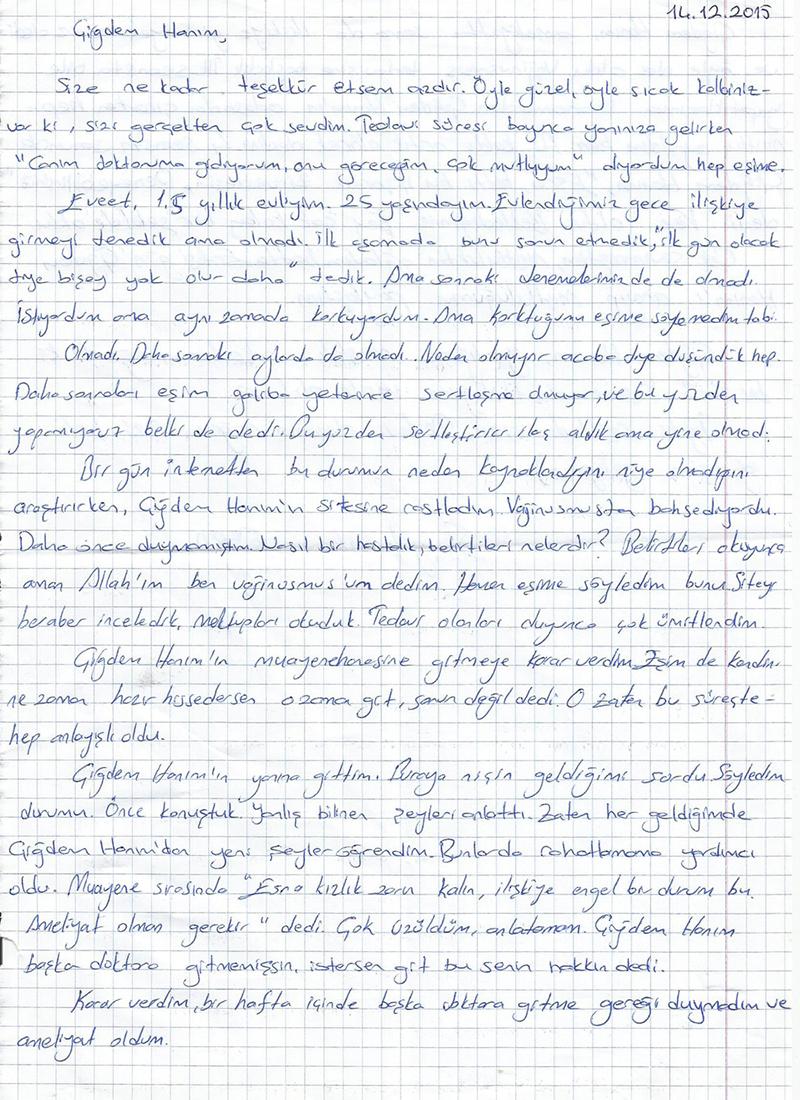 14.12.2015
Çiğdem Hanım,
Size ne kadar teşekkür etsem azdır. Öyle güzel, öyle sıcak kalbiniz-
var ki, sizi gerçekten çok sevdim. Tedavi süresi boyunca yanınıza gelirken
"Canım doktoruma gidiyorum, onu göreceğim, çok mutluyum" diyordum hep eşime.
Eveet, 1,5 yıllık evliyim. 25 yaşındayım. Evlendiğimiz gece ilişkiye
girmeyi denedik ama olmadı. İlk aşamada bunu sorun etmedik, "ilk gün olacak
diye bişey yok olur daha" dedik. Ama sonraki denemelerimizde de olmadı.
İstiyordum ama aynı zamanda korkuyordum. Ama korktuğumu eşime söylemedim tabi.
Olmadı. Daha sonraki aylarda da olmadı. Neden olmuyor acaba diye düşündük hep.
Daha sonraları eşim galiba yeterince sertleşme olmuyor, ve bu yüzden
yapamıyoruz belki de dedi. Bu yüzden sertleştirici ilaç aldık ama yine olmadı.
Bir gün internetten bu durumun neden kaynaklandığını niye olmadığını
araştırırken, Çiğdem Hanım'ın sitesine rastladım. Vajinusmustan bahsediyordu.
Daha önce duymamıştım. Nasıl bir hastalık, belirtileri nelerdir? Belirtileri okuyunca
aman Allah'ım ben vajinusmus'um dedim. Hemen eşime söyledim bunu. Siteyi
beraber inceledik, mektupları okuduk. Tedavi olanları duyunca çok ümitlendim.
Çiğdem Hanım'ın muayenehanesine gitmeye karar verdim. Eşim de kendin
ne zaman hazır hissedersen o zama git, sorun değil dedi. O zaten bu süreşte-
hep anlayışlı oldu.
Çiğdem Hanım'ın yanına gittim. Buraya niçin geldiğimi sordu. Söyledim
durumu. Önce konuştuk. Yanlış bilinen şeyleri anlattı. Zaten her geldiğimde
Çiğdem Hanım'dan yeni şeyler öğrendim. Bunlarda rahatlamama yardımcı
oldu. Muayene sırasında "Esra kızlık zarın kalın, ilişkiye engel bir durum bu.
Ameliyat olman gerekir" dedi. Çok üzüldüm, anlatamam. Çiğdem Hanım
başka doktora gitmemişsin, istersen git bu senin hakkın dedi.
Karar verdim, bir hafta içinde başka doktora gitme gereği duymadım ve
ameliyat oldum.